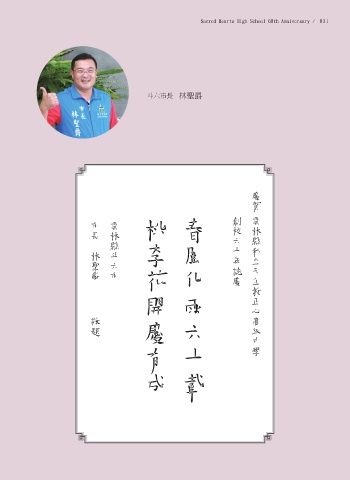 Sacred Hearts High School 60th Anniversary / 031
斗六市長 林聖爵
市長
林聖爵
慶賀 雲林縣私立天主教正心高級中學
創校六十年誌慶
春風化雨六十載
桃李花開慶有成
雲林縣斗六市
市長 林聖爵 敬題